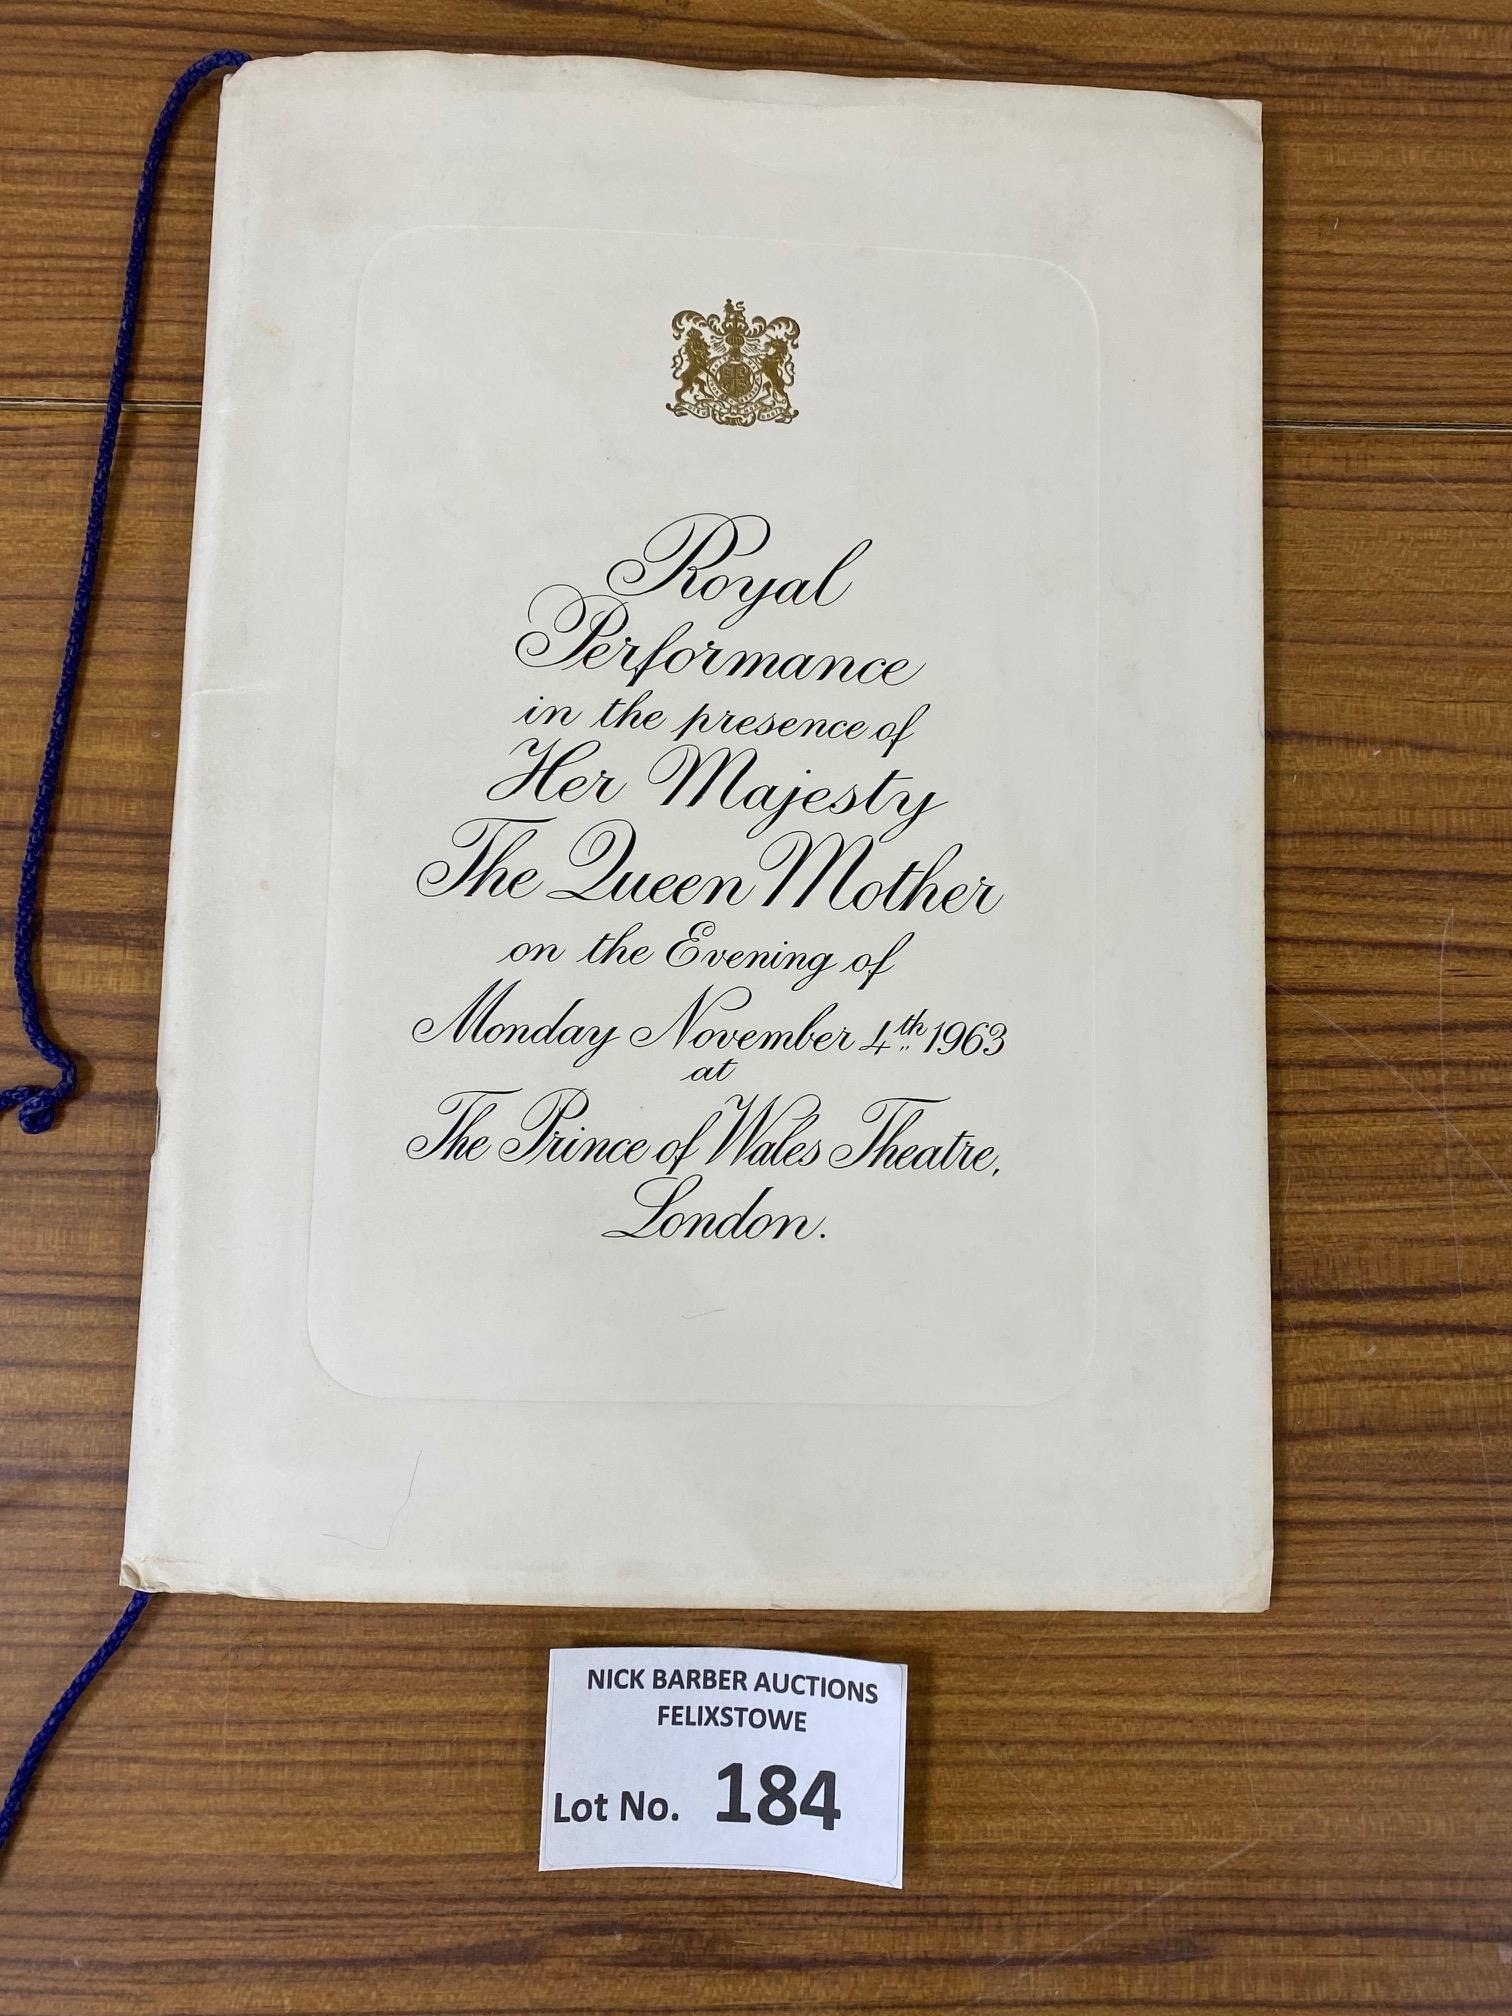 Royal
Performance
in the presence of
Her Majesty
The Queen Mother
on the Evening of
Monday November 4th 1963
at
The Prince of Wales Theatre,
London.
NICK BARBER AUCTIONS
FELIXSTOWE
Lot No. 184